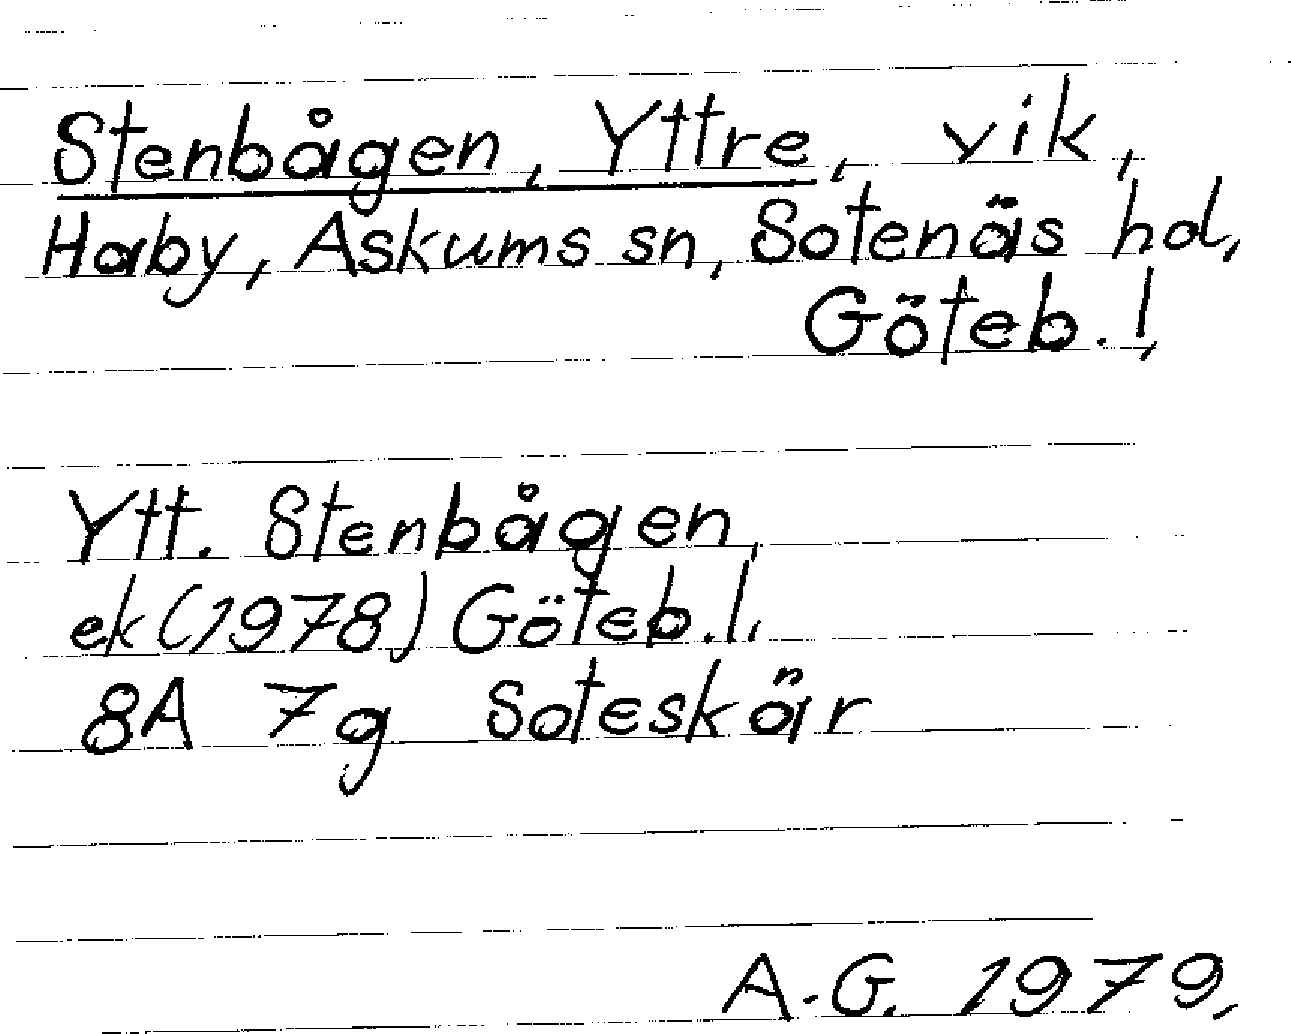 Stenbågen, Yttre, vik,
Haby, Askums sn, Sotenäs hd,
Göteb. l,
Ytt. Stenbågen,
ek (1978) Göteb. l,
8A 7g Soteskär
A.G. 1979,